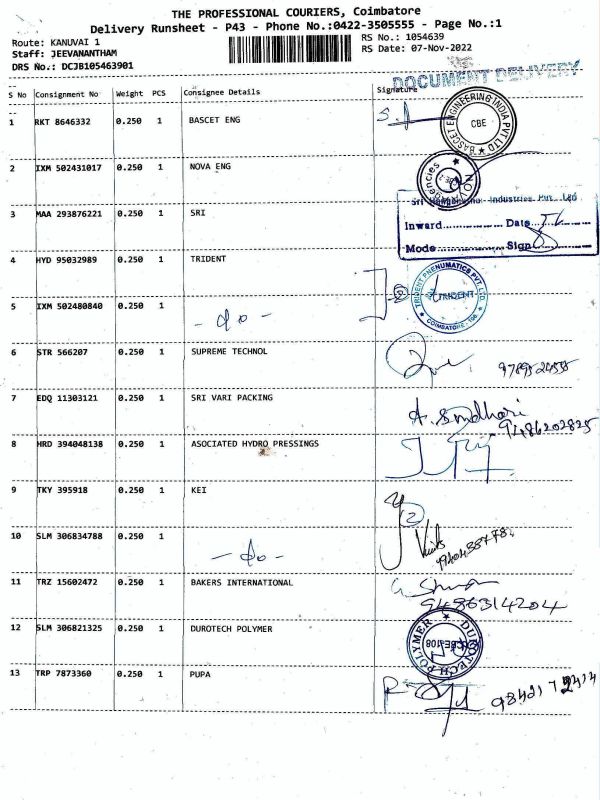 THE PROFESSIONAL COURIERS, Coimbatore
Delivery Runsheet - P43 - Phone No.:0422-3505555 - Page No.:1
Route: KANUVAI 1
Staff: JEEVANANTHAM
DRS No.: DCJB105463901
RS No.: 1054639
RS Date: 07-Nov-2022
DOCUMENT DELIVERY
S No Consignment No Weight PCS Consignee Details Signature
1 RKT 8646332 0.250 1 BASCET ENG
BASCET ENGINEERING INDIA PVT LTD
CBE
2 IXM 502431017 0.250 1 NOVA ENG
3 MAA 293876221 0.250 1 SRI
Industries Pvt. Ltd
Inward Date
Mode Sign
4 HYD 95032989 0.250 1 TRIDENT
TRIDENT PNENUMATICS PVT. LTD
TRIDENT
COIMBATORE
5 IXM 502480840 0.250 1 - do -
6 STR 566207 0.250 1 SUPREME TECHNOL
7 EDQ 11303121 0.250 1 SRI VARI PACKING
9486202825
8 HRD 394048138 0.250 1 ASOCIATED HYDRO PRESSINGS
9 TKY 395918 0.250 1 KEI
10 SLM 306834788 0.250 1 - do -
11 TRZ 15602472 0.250 1 BAKERS INTERNATIONAL
9486314204
12 SLM 306821325 0.250 1 DUROTECH POLYMER
DUROTECH POLYMER
13 TRP 7873360 0.250 1 PUPA